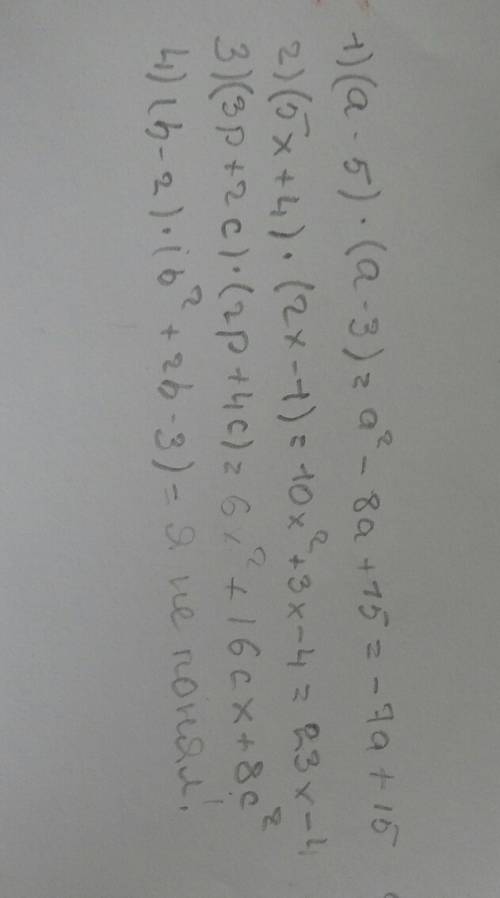 1) (a - 5) · (a - 3) = a² - 8a + 15 = -7a + 15
2) (5x + 4) · (2x - 1) = 10x² + 3x - 4 = 23x - 4
3) (3p + 2c) · (2p + 4c) = 6x² + 16cx + 8c²
4) (b - 2) · (b² + 2b - 3) = я не понял!